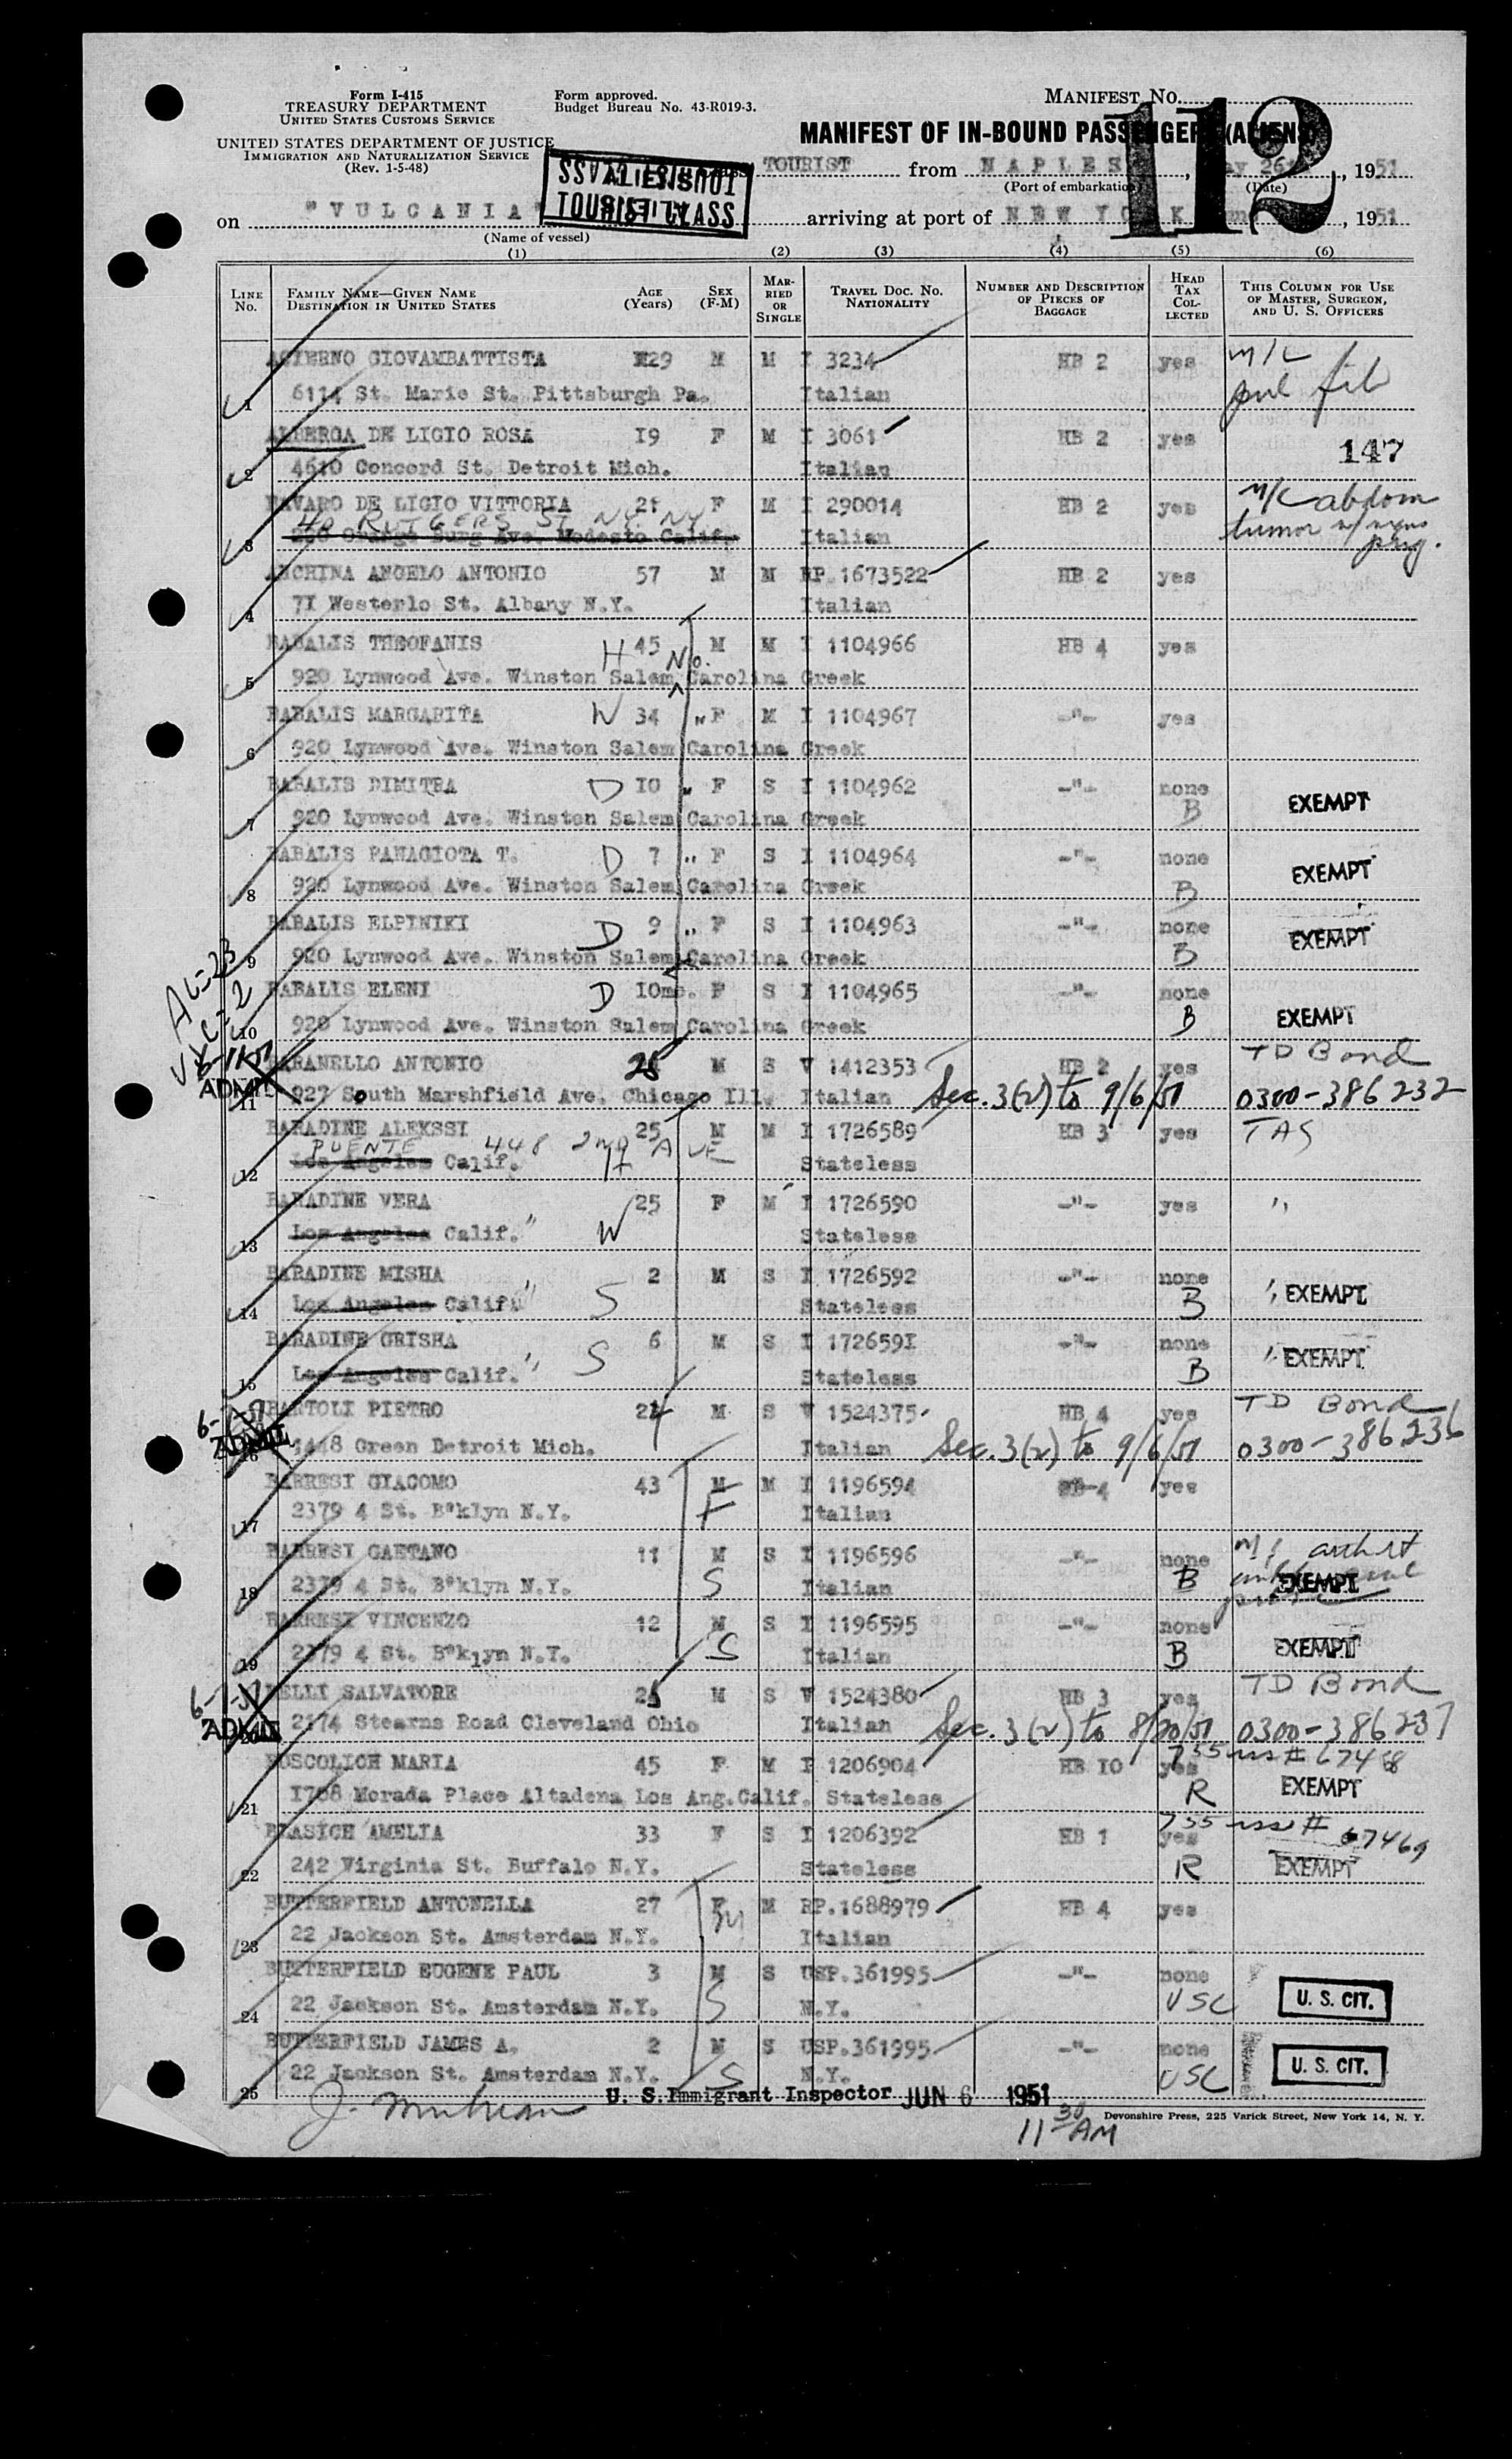 Form I-415
TREASURY DEPARTMENT
UNITED STATES CUSTOMS SERVICE
UNITED STATES DEPARTMENT OF JUSTICE
IMMIGRATION AND NATURALIZATION SERVICE
(Rev. 1-5-48)
Form approved.
Budget Bureau No. 43-R019-3.
MANIFEST NO.
112
MANIFEST OF IN-BOUND PASSENGERS (ALIENS)
TOURIST from NAPLES, May 26, 1951
(Port of embarkation) (Date)
TOURIST CLASS
on "VULCANIA" arriving at port of NEW YORK, 1951
(Name of vessel)
(1) (2) (3) (4) (5) (6)
LINE No. FAMILY NAME—GIVEN NAME DESTINATION IN UNITED STATES AGE (Years) SEX (F-M) MARRIED OR SINGLE TRAVEL DOC. NO. NATIONALITY NUMBER AND DESCRIPTION OF PIECES OF BAGGAGE HEAD TAX COLLECTED THIS COLUMN FOR USE OF MASTER, SURGEON, AND U. S. OFFICERS
ACIERNO GIOVAMBATTISTA 29 M M I 3234 HB 2 yes M/C
1 6114 St. Marie St. Pittsburgh Pa. Italian
ALBERGA DE LIGIO ROSA 19 F M I 3061 HB 2 yes 147
2 4610 Concord St. Detroit Mich. Italian
FAVARO DE LIGIO VITTORIA 21 F M I 290014 HB 2 yes M/C abdom
40 RUTGERS ST NY. NY tumor
3 Ave. Modesto Calif. Italian preg.
ANCHINA ANGELO ANTONIO 57 M M RP.1673522 HB 2 yes
4 71 Westerlo St. Albany N.Y. Italian
BABALIS THEOFANIS H 45 M M I 1104966 HB 4 yes
No.
5 920 Lynwood Ave. Winston Salem Carolina Greek
BABALIS MARGARITA W 34 " F M I 1104967 -"- yes
6 920 Lynwood Ave. Winston Salem Carolina Greek
BABALIS DIMITRA D 10 " F S I 1104962 -"- none EXEMPT
7 920 Lynwood Ave. Winston Salem Carolina Greek B
BABALIS PANAGIOTA T. D 7 " F S I 1104964 -"- none EXEMPT
8 920 Lynwood Ave. Winston Salem Carolina Greek B
BABALIS ELPINIKI D 9 " F S I 1104963 -"- none EXEMPT
9 920 Lynwood Ave. Winston Salem Carolina Greek B
BABALIS ELENI D 10mo. F S I 1104965 -"- none
10 920 Lynwood Ave. Winston Salem Carolina Greek B EXEMPT
BARANELLO ANTONIO 25 M S V 1412353 HB 2 yes TD Bond
ADMIT 11 927 South Marshfield Ave. Chicago Ill. Italian Sec. 3(2) to 9/6/51 0300-386232
BARADINE ALEKSSI 25 M M I 1726589 HB 3 yes TAS
PUENTE 448 2nd AVE
12 Los Angeles Calif. H Stateless
BARADINE VERA 25 F M I 1726590 -"- yes "
13 Los Angeles Calif. " W Stateless
BARADINE MISHA 2 M S I 1726592 -"- none " EXEMPT
14 Los Angeles Calif. " S Stateless B
BARADINE GRISHA 6 M S I 1726591 -"- none " EXEMPT
15 Los Angeles Calif. " S Stateless B
BARTOLI PIETRO 24 M S V 1524375 HB 4 yes TD Bond
ADMIT 16 1448 Green Detroit Mich. Italian Sec. 3(2) to 9/6/51 0300-386236
BARRESI GIACOMO 43 M M I 1196594 HB 4 yes
17 2379 4 St. B'klyn N.Y. F Italian
BARRESI GAETANO 11 M S I 1196596 -"- none
18 2379 4 St. B'klyn N.Y. S Italian B EXEMPT
BARRESI VINCENZO 12 M S I 1196595 -"- none
19 2379 4 St. B'klyn N.Y. S Italian B EXEMPT
BELLI SALVATORE 25 M S V 1524380 HB 3 yes TD Bond
ADMIT 20 2174 Stearns Road Cleveland Ohio Italian Sec. 3(2) to 8/20/51 0300-386237
BUSCOLICH MARIA 45 F M I 1206904 HB 10 yes 755 67468
21 1768 Morada Place Altadena Los Ang. Calif. Stateless R EXEMPT
BLASICH AMELIA 33 F S I 1206392 HB 1 yes 755 67469
22 242 Virginia St. Buffalo N.Y. Stateless R EXEMPT
BUTTERFIELD ANTONELLA 27 F M RP.1688979 HB 4 yes
23 22 Jackson St. Amsterdam N.Y. M Italian
BUTTERFIELD EUGENE PAUL 3 M S USP.361995 -"- none
24 22 Jackson St. Amsterdam N.Y. S N.Y. USC U. S. CIT.
BUTTERFIELD JAMES A. 2 M S USP.361995 -"- none
25 22 Jackson St. Amsterdam N.Y. S N.Y. USC U. S. CIT.
U. S. Immigrant Inspector JUN 6 1951
11 30 AM
Devonshire Press, 225 Varick Street, New York 14, N. Y.